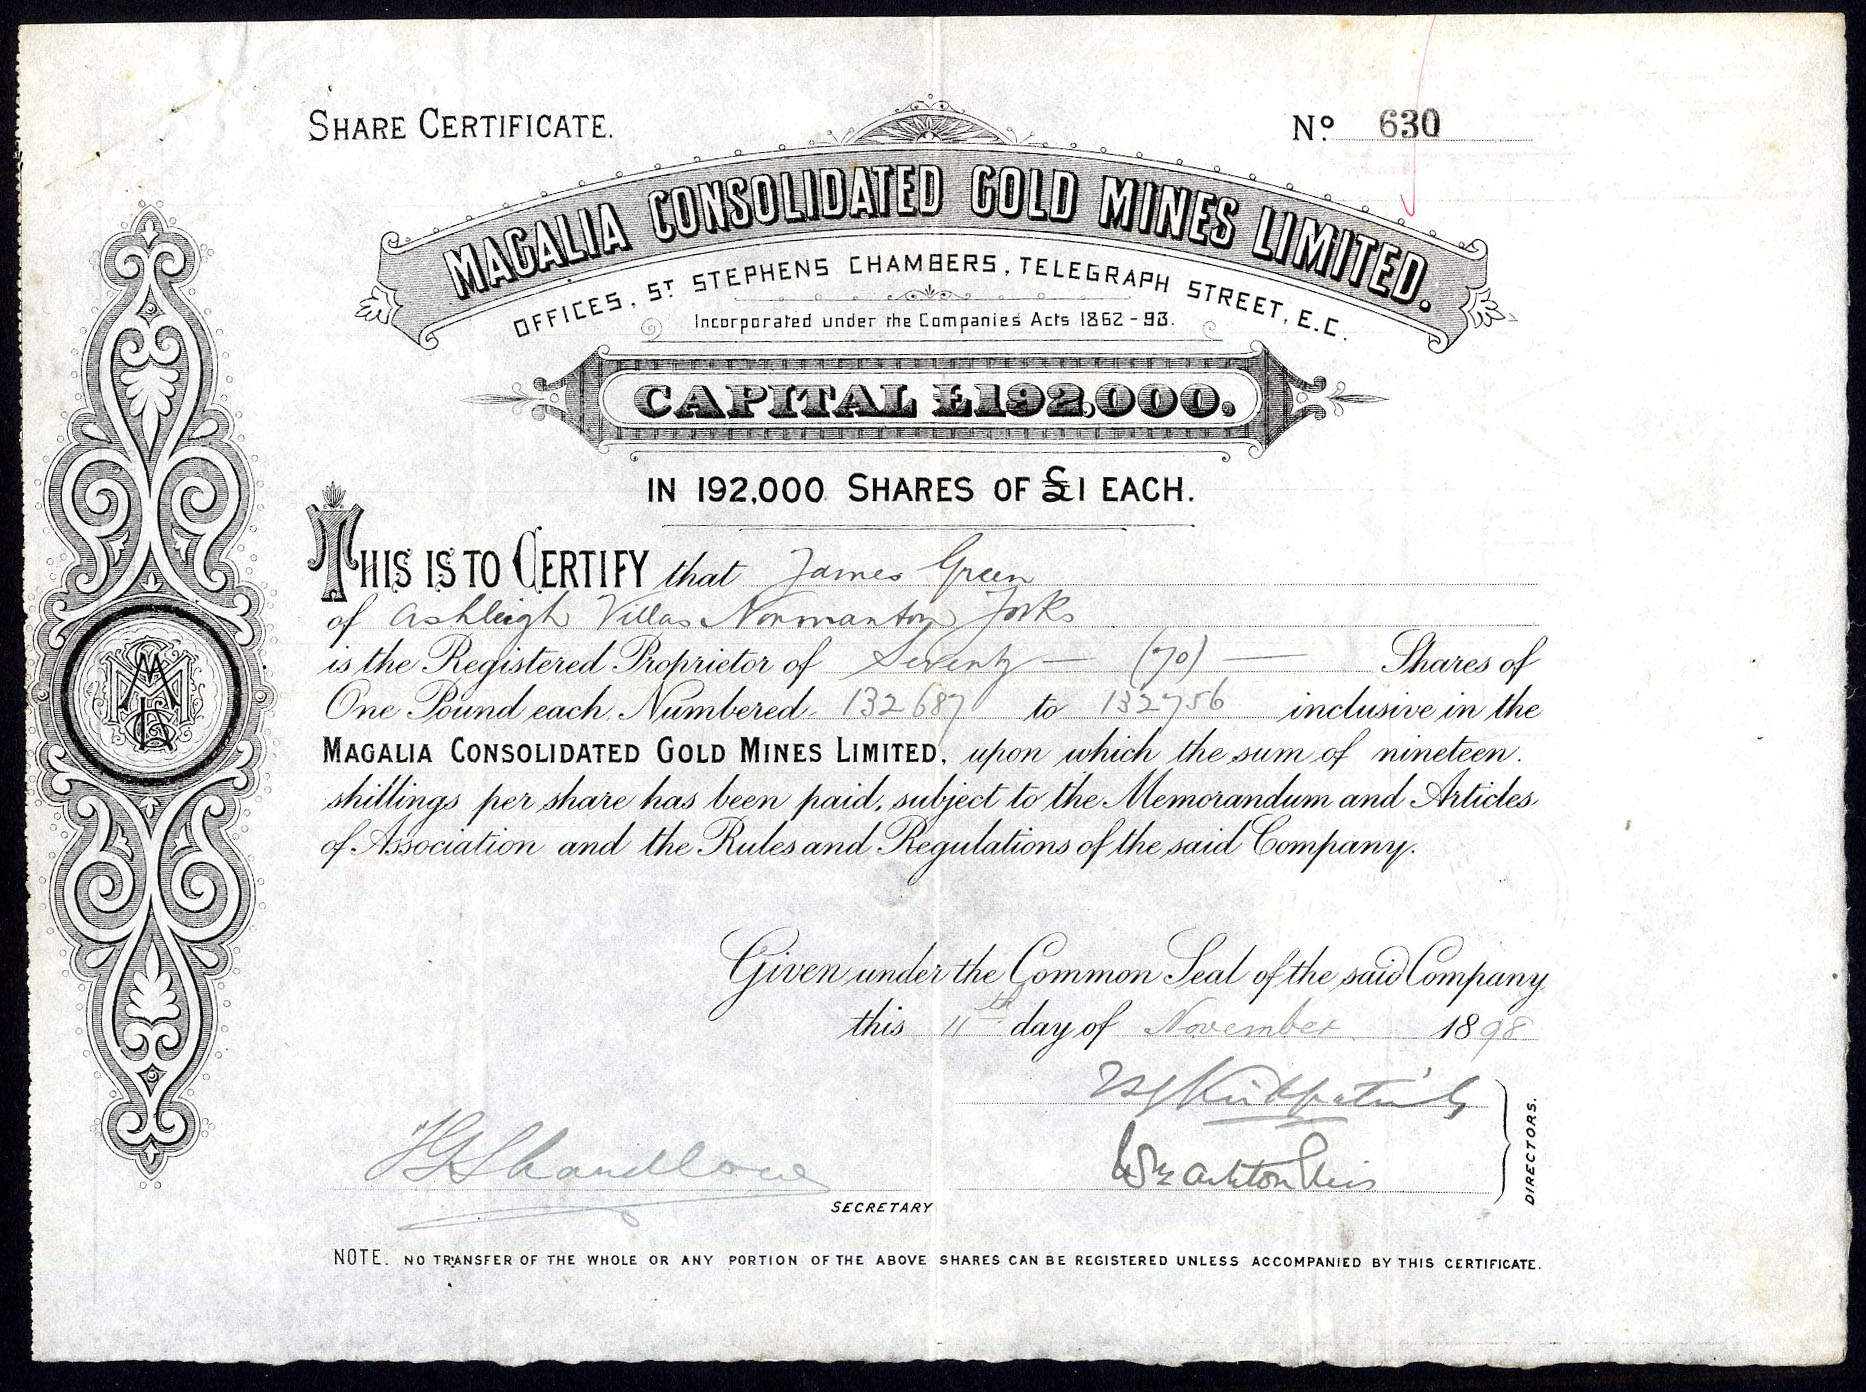 SHARE CERTIFICATE.
Nº 630
MAGALIA CONSOLIDATED GOLD MINES LIMITED.
OFFICES, ST STEPHENS CHAMBERS, TELEGRAPH STREET, E.C.
Incorporated under the Companies Acts 1862-93.
CAPITAL £192,000.
IN 192,000 SHARES OF £1 EACH.
THIS IS TO CERTIFY that James Green
of Ashleigh Villas Normanton Yorks
is the Registered Proprietor of Seventy — (70) — Shares of
One Pound each, Numbered 132687 to 132756 inclusive in the
MAGALIA CONSOLIDATED GOLD MINES LIMITED, upon which the sum of nineteen
shillings per share has been paid, subject to the Memorandum and Articles
of Association and the Rules and Regulations of the said Company.
Given under the Common Seal of the said Company
this 11th day of November 1898
Kirkpatrick
DIRECTORS.
SECRETARY
NOTE. NO TRANSFER OF THE WHOLE OR ANY PORTION OF THE ABOVE SHARES CAN BE REGISTERED UNLESS ACCOMPANIED BY THIS CERTIFICATE.